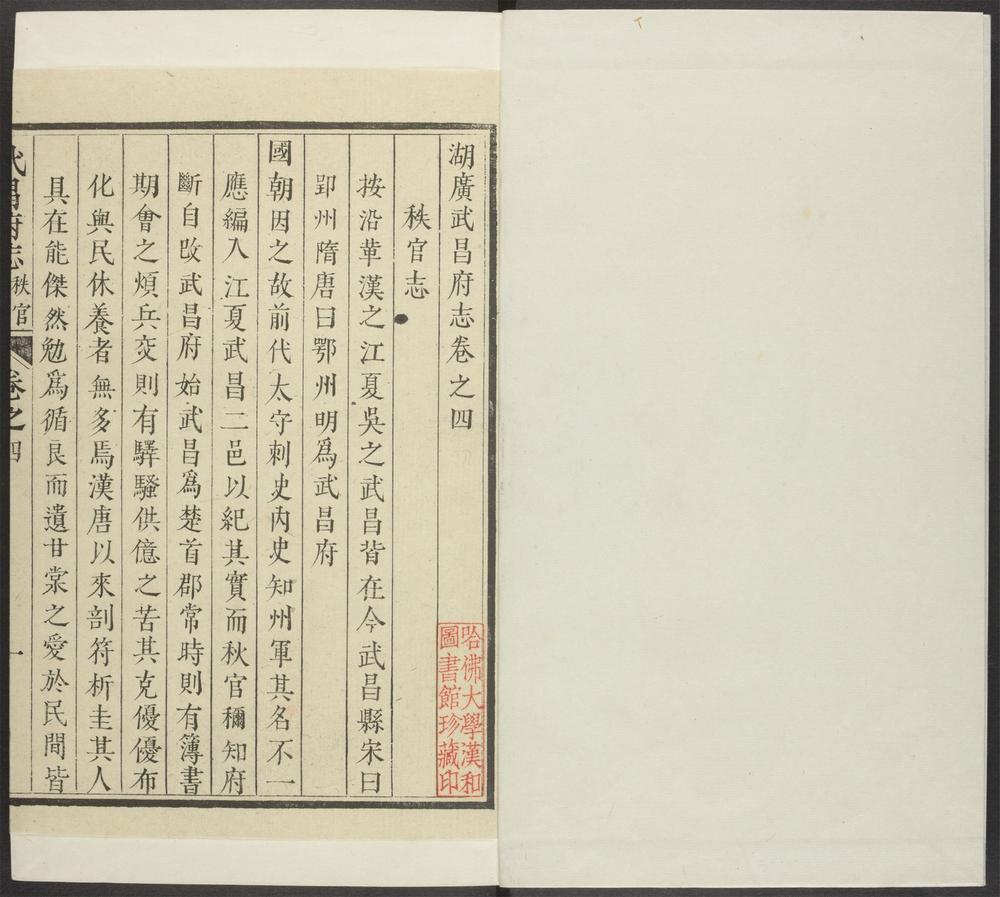 湖廣武昌府志卷之四
秩官志
按沿革漢之江夏吳之武昌皆在今武昌縣宋曰
郢州隋唐曰鄂州明爲武昌府
國朝因之故前代太守刺史內史知州軍其名不一
應編入江夏武昌二邑以紀其實而秋官稱知府
斷自改武昌府始武昌爲楚首郡常時則有簿書
期會之煩兵交則有驛騷供億之苦其克優優布
化與民休養者無多焉漢唐以來剖符析圭其人
具在能傑然勉爲循良而遺甘棠之愛於民間皆
武昌府志 秩官 卷之四 一
哈佛大學漢和
圖書館珍藏印